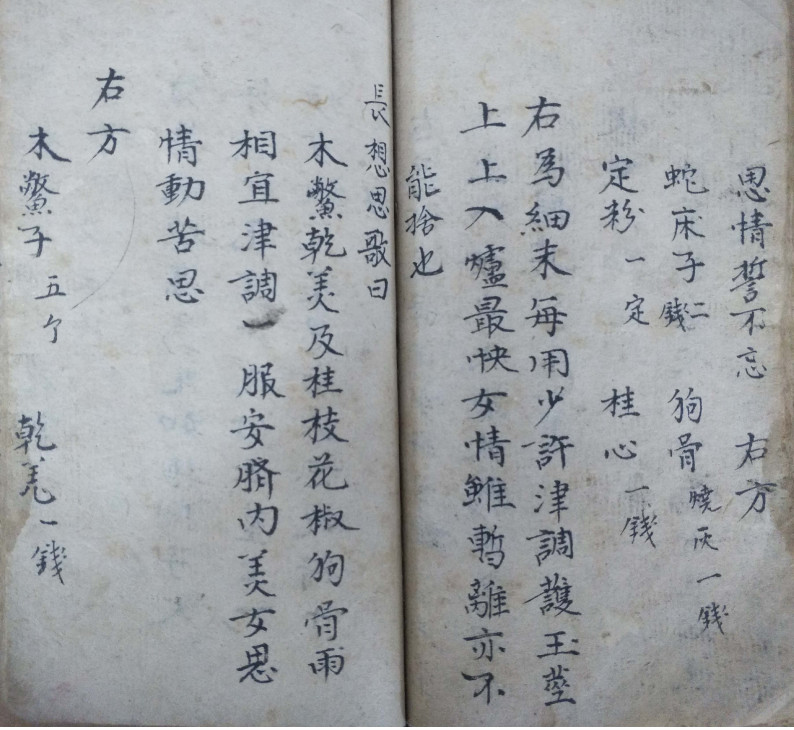 思情誓不忘 右方
蛇床子二錢 狗骨燒灰一錢
定粉一定 桂心一錢
右為細末每用少許津調護玉莖
上上入爐最快女情雖暫離亦不
能捨也
長想思歌曰
木鱉乾羌及桂枝花椒狗骨兩
相宜津調一服安臍內美女思
情動苦思
右方
木鱉子五个 乾羌一錢